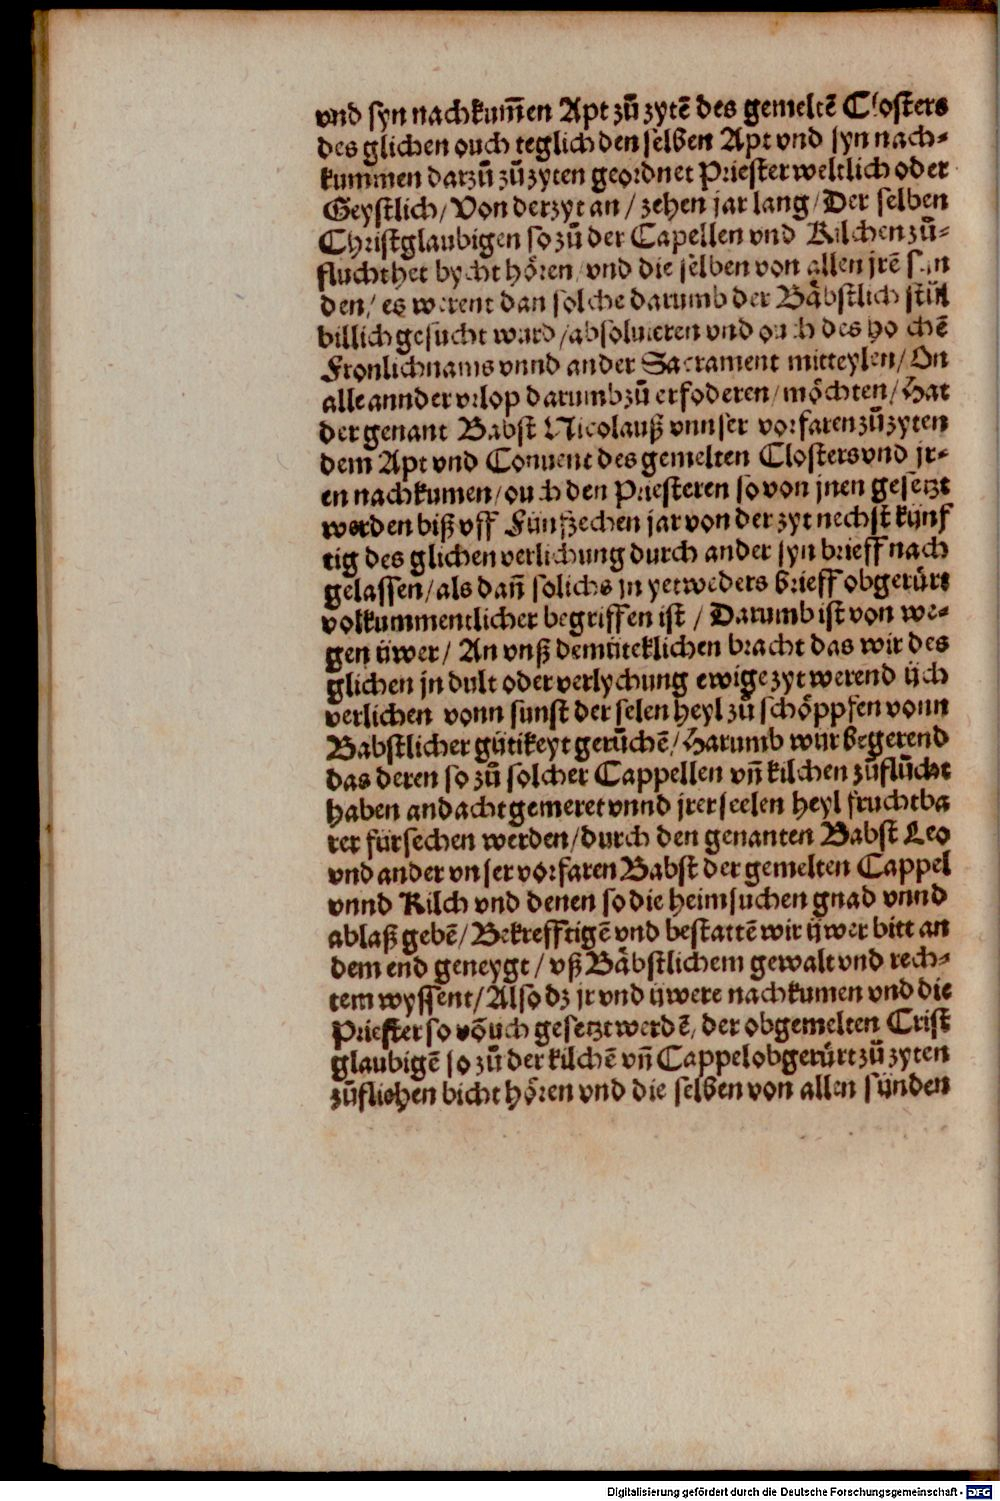 vnd syn nachkum̄en Apt zů zytē des gemeltē Closters
des glichen ouch teglich den selben Apt vnd syn nach⸗
kummen darzů zů zyten geordnet Priester weltlich oder
Geystlich/ Von der zyt an / zehen jar lang/ Der selben
Christglaubigen so zů der Capellen vnd Kilchen zů⸗
flucht het bycht hören/ vnd die selben von allen jrē sün
den/ es werent dan solche darumb der Bäbstlich stůl
billich gesucht wurd /absoluieren vnd ouch des ho chē
Fronlichnams vnnd ander Sacrament mitteylen/ On
alle annder vrlop darumb zů erfoderen/ möchten/ Hat
der genant Babst Nicolauß vnnser vorfaren zů zyten
dem Apt vnd Conuent des gemelten Closters vnd jr⸗
en nachkumen/ ouch den Priesteren so von jnen gesetzt
werden biß vff Fünffzechen jar von der zyt nechst künf
tig des glichen verlichung durch ander syn brieff nach
gelassen/ als dan̄ solichs jn yetweders brieff obgerürt
volkummentlicher begriffen ist / Darumb ist von we⸗
gen üwer/ An vnß demüteklichen bracht das wir des
glichen jn dult oder verlychung ewige zyt werend üch
verlichen vonn sunst der selen heyl zů schöppfen vonn
Babstlicher gütikeyt gerůchē/ Harumb wir begerend
das deren so zů solcher Cappellen vn̄ kilchen zůflůcht
haben andacht gemeret vnnd jrer seelen heyl fruchtba
rer fürsechen werden/ durch den genanten Babst Leo
vnd ander vnser vorfaren Babst der gemelten Cappel
vnnd Kilch vnd denen so die heimsuchen gnad vnnd
ablaß gebē/ Bekrefftigē vnd bestattē wir üwer bitt an
dem end geneygt / vß Bäbstlichem gewalt vnd rech⸗
tem wyssent/ Also dz jr vnd üwere nachkumen vnd die
Priester so vō uch gesetzt werdē, der obgemelten Crist
glaubigē so zů der kilchē vn̄ Cappel obgerürt zů zyten
zůfliehen bicht hören vnd die selben von allen sünden
Digitalisierung gefördert durch die Deutsche Forschungsgemeinschaft - DFG